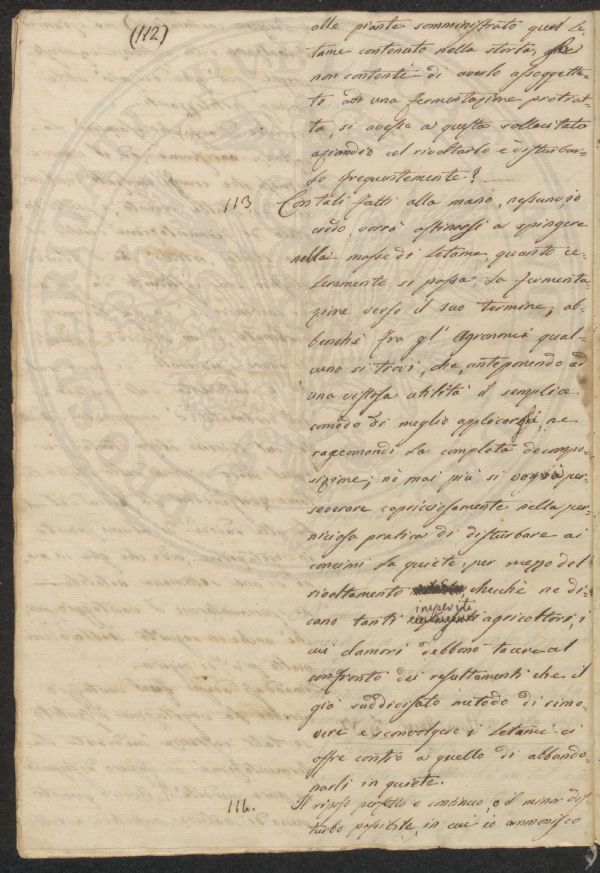 (112)
alle piante somministrato quel le-
tame contenuto nella storta, che
non contenti di averlo assoggetta-
to ad una fermentazione protrat-
ta, si avesse a questa sollecitato
aziandio col rivoltarlo e disturbar-
lo frequentemente?
113. Con tali fatti alla mano, nessuno, io
credo, vorrà ostinarsi a spingere
nella masse di letame quanto ce-
leramente si possa, la fermenta-
zione verso il suo termine; ab-
benchè fra gl' Agronomi qual-
cuno si trovi, che, anteponendo ad
una vistosa utilità il semplice
comodo di meglio applicarli, ne
raccomandi la completa decompo-
sizione; nè mai più si vorrà per-
severare capricciosamente nella per-
niciosa pratica di disturbare ai
concimi la quiete, per mezzo del
rivoltamento checchè ne di-
cano tanti imperiti agricoltori, i
cui clamori debbono tacere al
confronto dei resultamenti che il
già suddivisato metodo di rimo-
vere e sconvolgere i letami ci
offre contro a quello di abbando-
narli in quiete.
114. Il riposo perfetto e continuo, o il minor dis-
turbo possibile, in cui io ammonisco